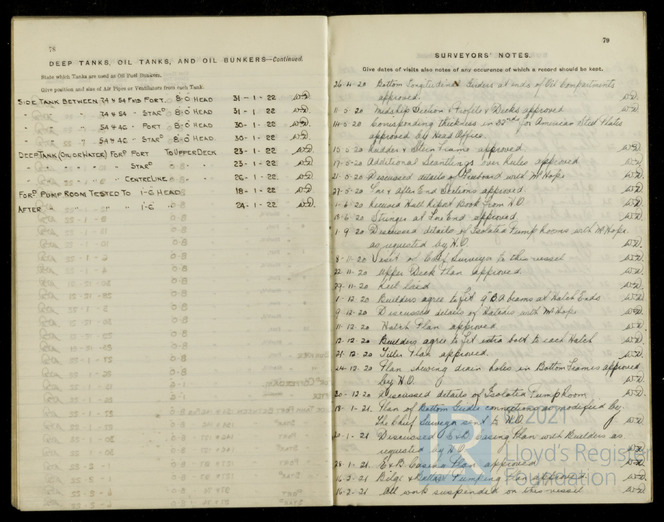 78
DEEP TANKS, OIL TANKS, AND OIL BUNKERS—Continued.
State which Tanks are used as Oil Fuel Bunkers.
Give position and size of Air Pipes or Ventilators from each Tank.
SIDE TANK BETWEEN 74 & 54 FWD PORT 8-0 HEAD 31-1-22
" " " 74 & 54 - STARD 8-0 HEAD 31-1-22
" " " 54 & AG - PORT - 8-0 HEAD 30-1-22
" " " 54 & AG - STARD 8-0 HEAD 30-1-22
DEEP TANK (OIL OR WATER) FORD PORT TO UPPER DECK 23-1-22
" " " STARD " 23-1-22
" " " CENTRE LINE " 26-1-22
FORD PUMP ROOM TESTED TO 1-6 HEAD 18-1-22
AFTER " " " 1-6 " 24-1-22
79
SURVEYORS' NOTES.
Give dates of visits also notes of any occurrence of which a record should be kept.
26-4-20 Bottom Longitudinal Girders at ends of Oil Compartments
approved.
5-20 Midship Section & Profile & Decks approved
14-5-20 Corresponding thickness in for American Sted Plates
approved by Head Office.
5-20 Rudder & Stern Frame approved.
5-20 Additional Scantlings over Rules approved
5-20 Discussed details of Freeboard with Mr Hope
27-5-20 Fore & after End Sections approved
6-20 Received Hull Report Book from H.O.
6-20 Stringer at Fore End approved
1-9-20 Discussed details of Isolated Pump Rooms with Mr Hope
as requested by H.O.
11-20 Visit of Chief Surveyor to this vessel
22-11-20 Upper Deck Plan approved
29-11-20 Keel laid
1-12-20 Builders agree to fit 9" BA beams at Hatch Ends
9-12-20 Discussed details of Hatches with Mr Hope
11-12-20 Hatch Plan approved
12-12-20 Builders agree to fit extra bolt to each Hatch
21-12-20 Tiller Plan approved
24-12-20 Plan shewing drain holes in Bottom Frames approved
by H.O.
30-12-20 Discussed details of Isolated Pump Room
18-1-21 Plan of Bottom Girder connections as modified by
The Chief Surveyor sent to H.O.
20-1-21 Discussed E&B Casing Plan with Builders as
requested by H.O.
28-1-21 E&B Casing Plan approved
16-2-21 Bilge & Ballast Pumping Plan approved
16-2-21 All work suspended on this vessel
LR
© 2021
Lloyd's Register
Foundation